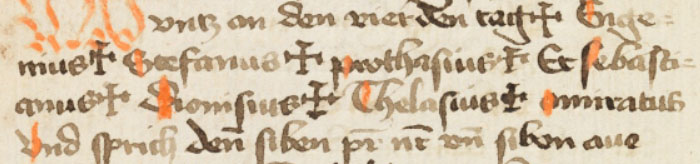 vntz an den vierden tag ✝ Enge⸗
nius ✝ Stefanus ✝ prothasius ✝ Et sebasti⸗
anus ✝ Dionisius ✝ Thelasius ✝ omiratus
vnd sprich den̄ siben pr̄ nr̄ vn̄ siben aue